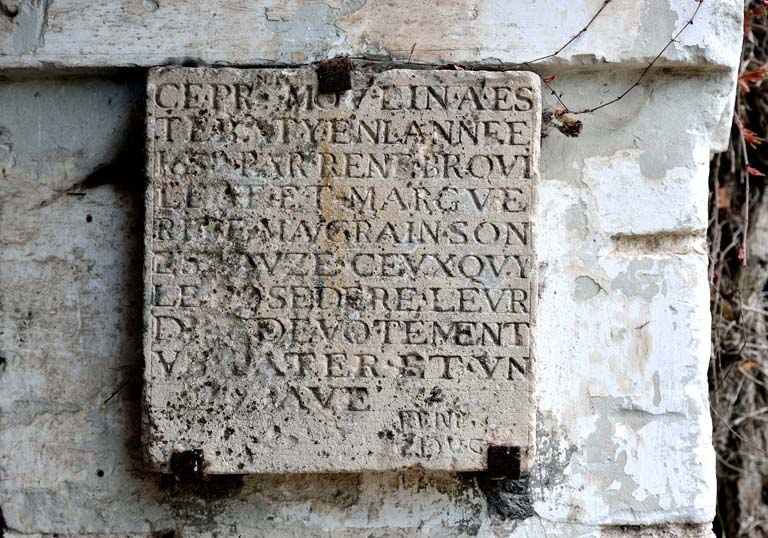 CE·PR· MOVLIN·A·ES
TE BATY·EN LANNEE
PAR RENE·BROVI
ET·MARGVE
RITE·MAVGRAIN·SON
CEVX·QVY
LE SEDERE·LEVR
DEVOTEMENT
VN PATER·ET·VN
AVE
RENE